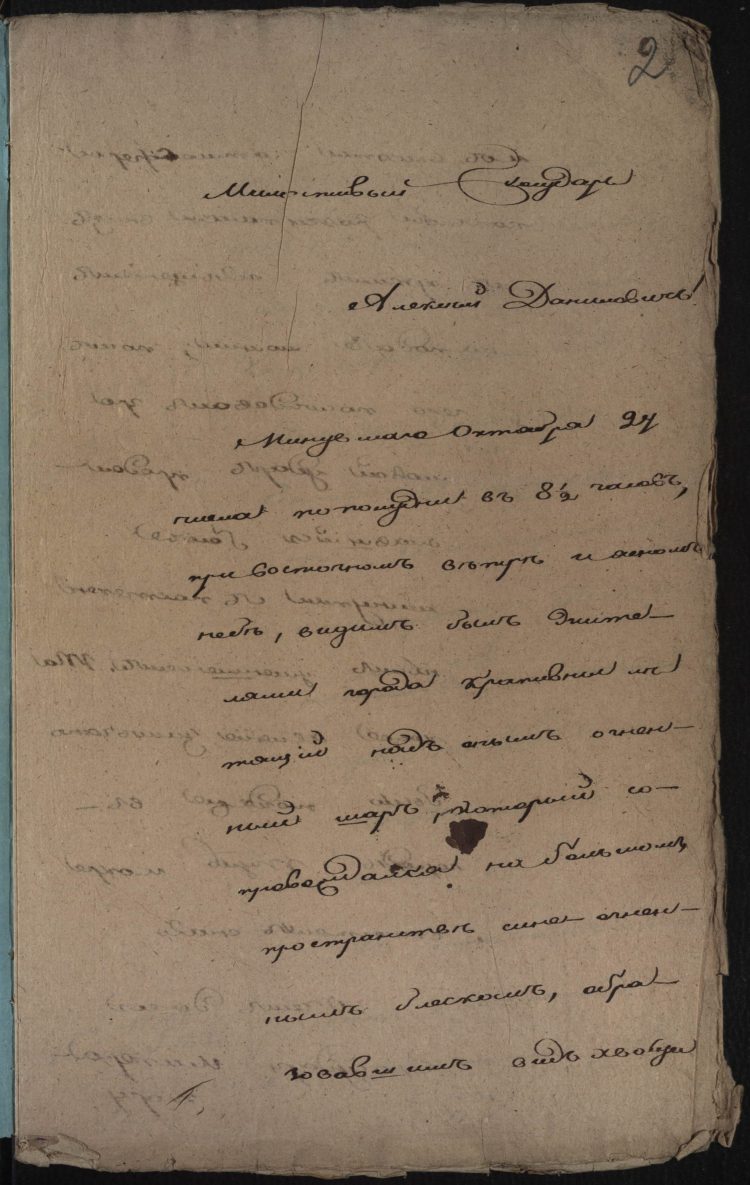 2
Милостивый Государь
Алексий Даниловичь!
Минувшаго Октября 24
числа пополудни въ 8½ часовъ,
при восточномъ вѣтрѣ и ясномъ
небѣ, видимъ былъ жите-
лями города Крапивны ле
тящій надъ онымъ огнен-
ный шаръ, который со-
провождался на большомъ
пространствѣ сине-огнен-
нымъ блескомъ, обра
зовавшимъ видъ хвоста